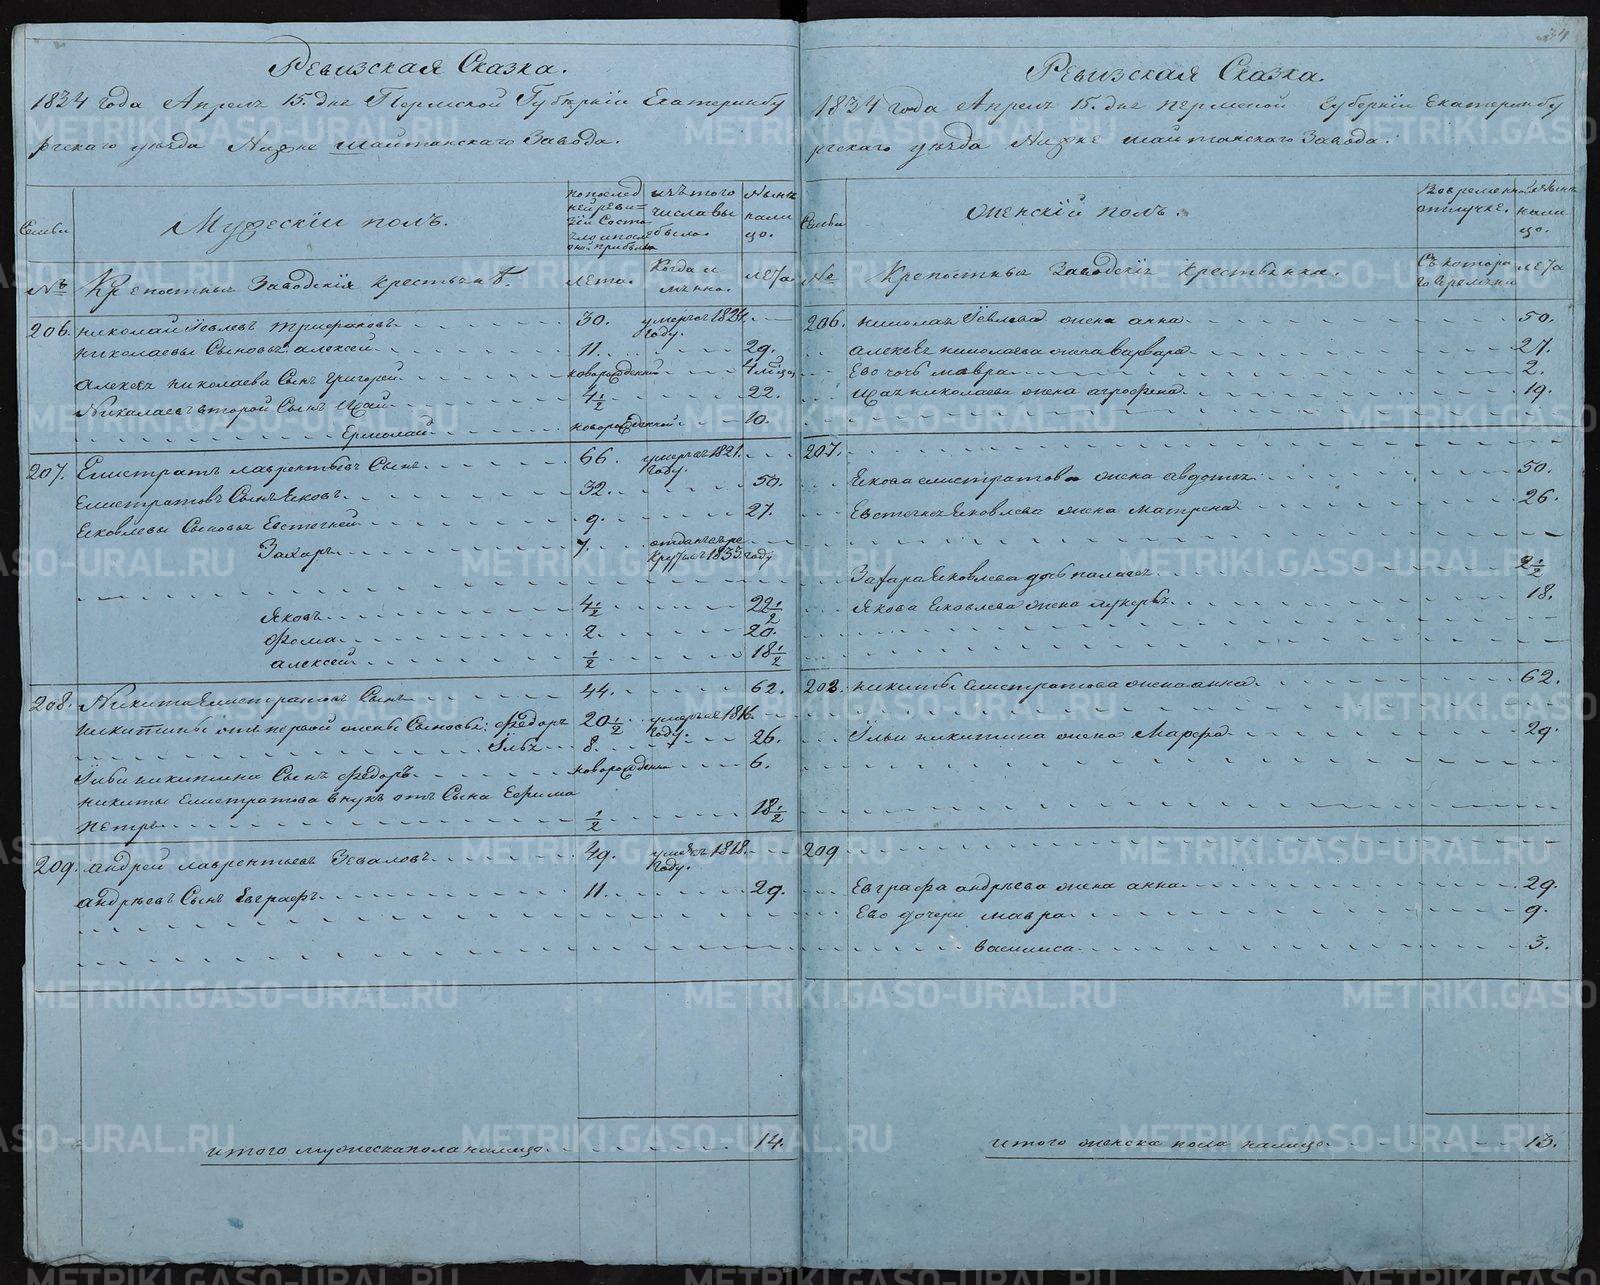 34
Ревизская Сказка.
1834 года Апреля 15. дня Пермской Губерніи Екатеринбу
ргскаго уезда Нижне Шайтанскаго Завода.
Семьи
Мужескій полъ.
по послед
ней реви-
зіи состо
яло и после
оной прибыло
изъ того
числа вы
было.
Нынѣ
нали
цо.
№
Крепостныя Заводскія крестьяне.
лета.
Когда и
мянно.
лета
206. Николай Іевлевъ Трифановъ 30. умеръ въ 1824. году.
Николаевы Сыновья: Алексей 11. 29.
Алексея Николаева Сынъ Григорей новорожденной 4 мца
Николаевъ второй Сынъ Исай 4 1/2 22.
Ермолай новорожденной 10.
207. Елистратъ Лаврентьевъ Сынъ 66. умеръ въ 1821. году.
Елистратовъ Сынъ Яковъ 32. 50.
Яковлевы Сыновья Евстегней 9. 27.
Захаръ 7. отданъ въ ре
круты въ 1833. году
Яковъ 4 1/2 22 1/2
Фома 2. 20.
Алексей 1/2 18 1/2
208. Никита Елистратовъ Сынъ 44. 62.
Никитины отъ первой жены Сыновья: Федоръ 20 1/2 умеръ въ 1816. году.
Илья 8. 26.
Ильи Никитина Сынъ Федоръ новорожденной 6.
Никиты Елистратова внукъ отъ Сына Ефима
Петръ 1/2 18 1/2
209. Андрей Лаврентьевъ Зеваловъ 49. умеръ въ 1818. году.
Андреевъ Сынъ Евграфъ 11. 29.
итого мужеска пола налицо 14.
Ревизская Сказка.
1834 года Апреля 15. дня Пермской Губерніи Екатеринбу
ргскаго уезда Нижне Шайтанскаго Завода.
Семьи
Женскій полъ.
Во временной
отлучке.
Нынѣ
нали
цо.
№
Крепостныя Заводскія Крестьянки.
Съ котора
го времяни
лета
206. Николая Іевлева жена Анна 50.
Алексея Николаева жена Варвара 27.
Ево дочь Мавра 2.
Исая Николаева жена Агрофена 19.
207.
Якова Елистратова жена Авдотья 50.
Евстегнея Яковлева жена Матрена 26.
Захара Яковлева дочь Палагея 2 1/2
Якова Яковлева жена Лукерья 18.
208. Никиты Елистратова жена Анна 62.
Ильи Никитина жена Марфа 29.
209
Евграфа Андреева жена Анна 29.
Ево дочери Мавра 9.
Василиса 3.
итого женска пола налицо 13.
METRIKI.GASO-URAL.RU